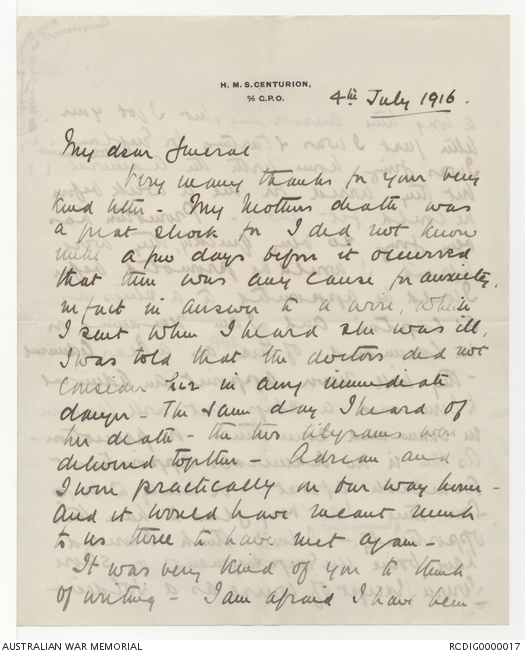 H. M. S. CENTURION,
c/o G.P.O.
4th July 1916.
My dear General
Very many thanks for your very
kind letter - My Mothers death was
a great shock for I did not know
until a few days before it occurred
that there was any cause for anxiety,
in fact in answer to a wire, which
I sent when I heard she was ill,
I was told that the doctors did not
consider her in any immediate
danger - The same day I heard of
her death - the two telegrams were
delivered together - Adrian and
I were practically on our way home -
and it would have meant much
to us three to have met again -
It was very kind of you to think
of writing - I am afraid I have been -
AUSTRALIAN WAR MEMORIAL
RCDIG0000017